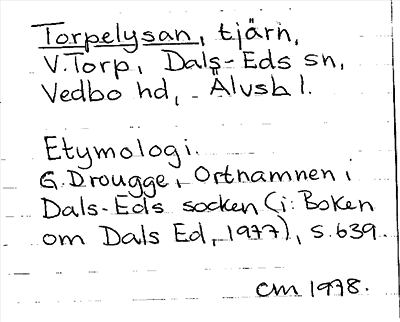 Torpelysan, tjärn,
V. Torp, Dals-Eds sn,
Vedbo hd, Älvsb l.
Etymologi.
G. Drougge, Ortnamnen i
Dals-Eds socken (i: Boken
om Dals Ed, 1977), s. 639.
CM 1978.